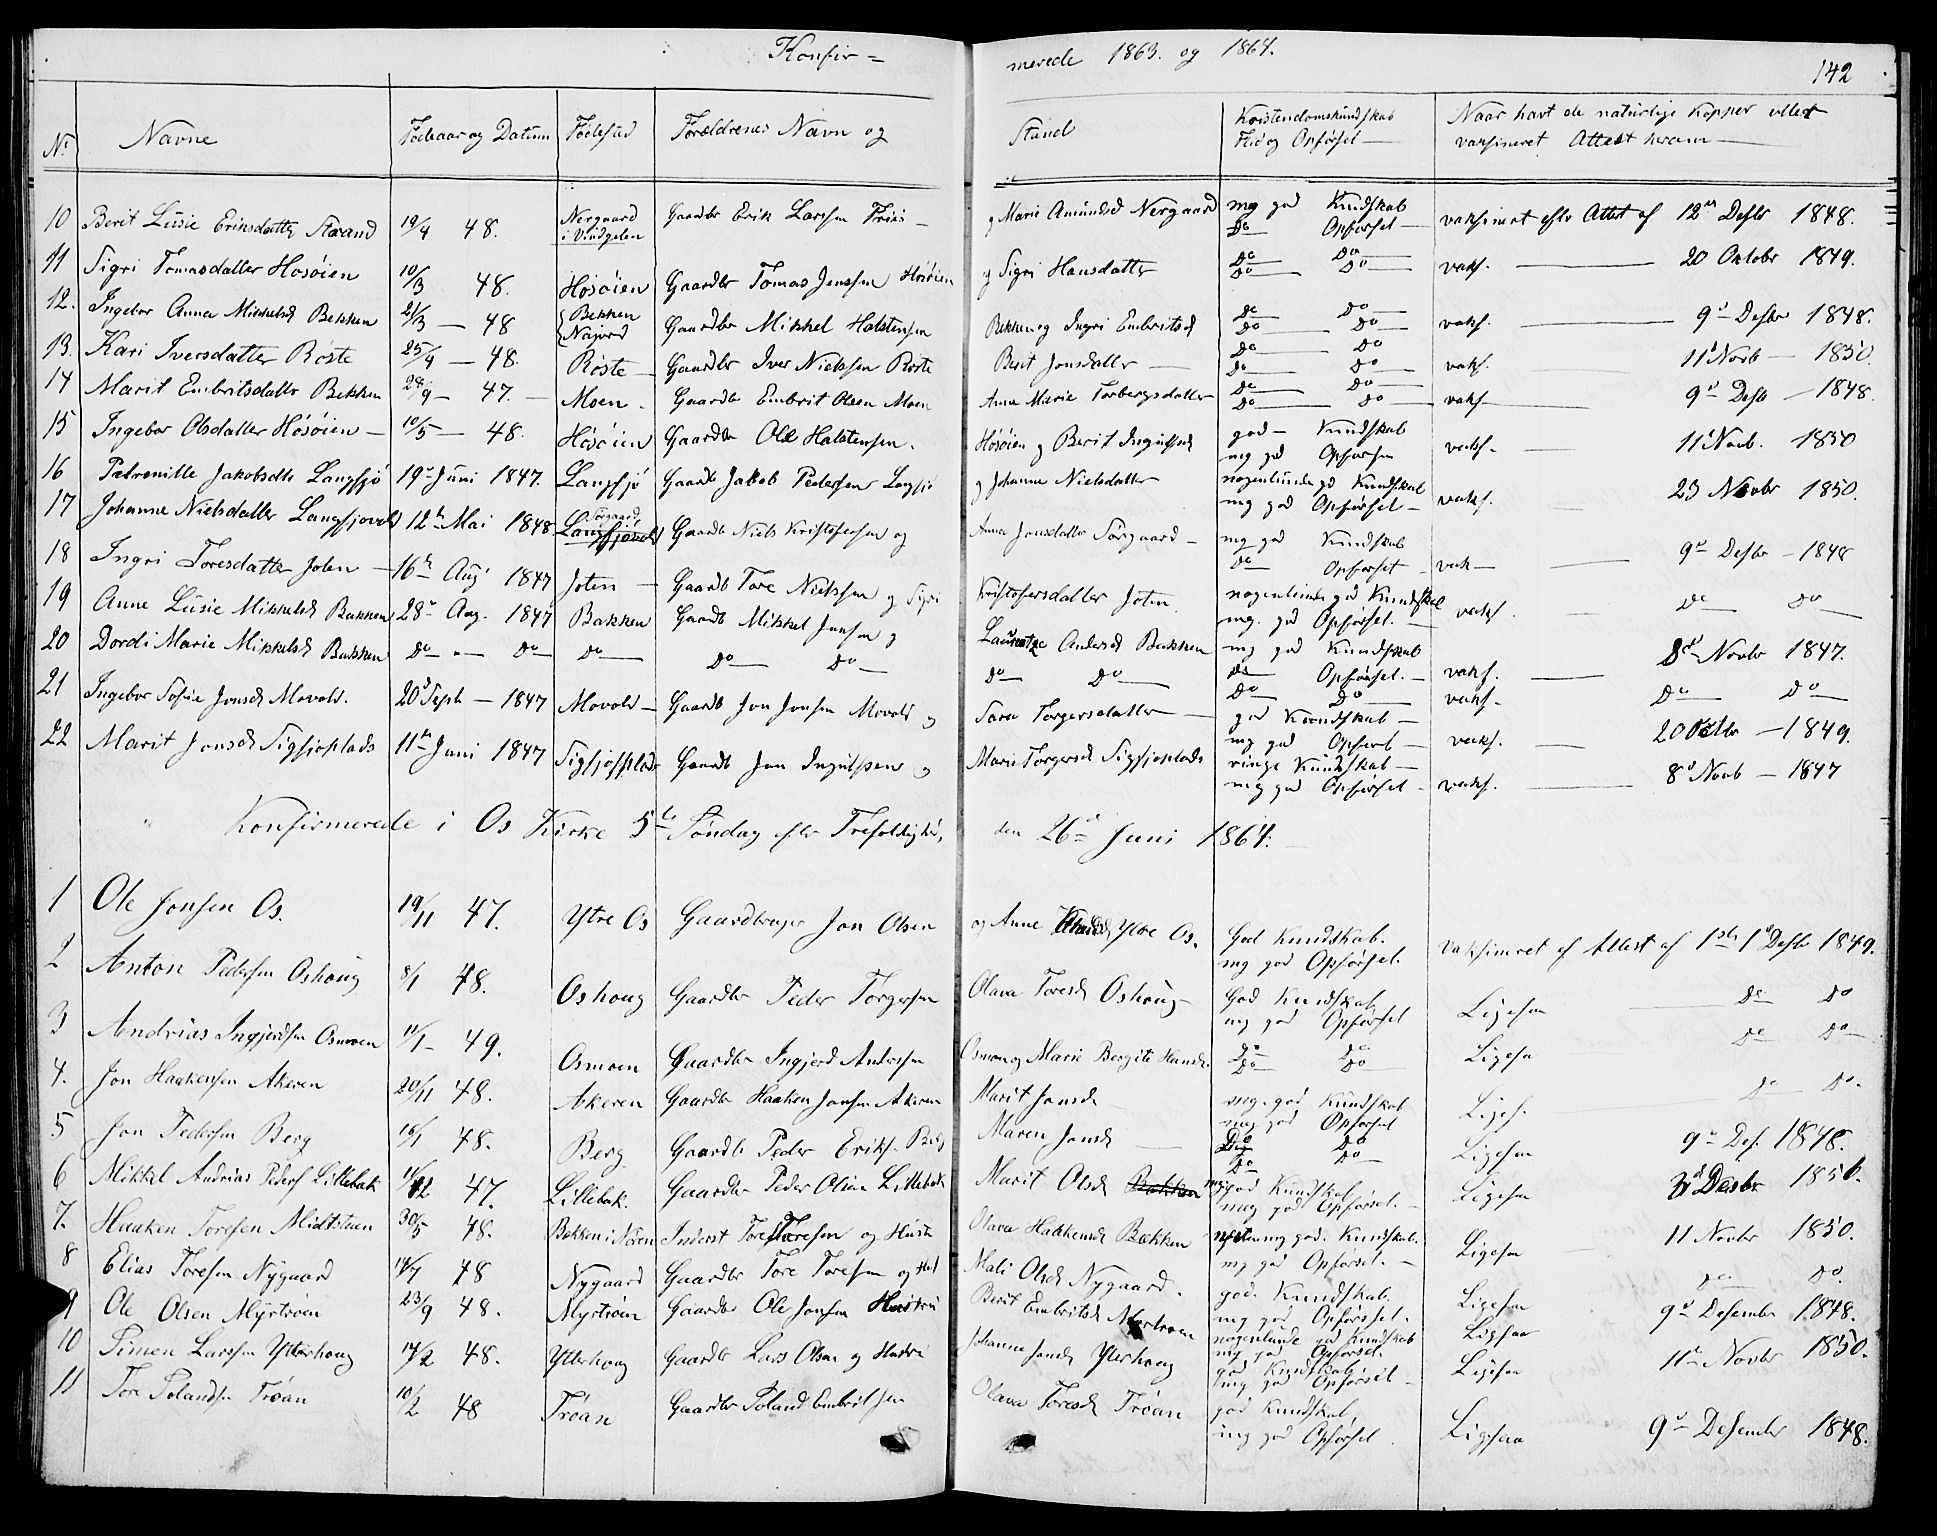 Konfir= merede 1863. og 1864. 142
Nr Navne Fødeaar og Datum Fødested Forældrenes Navn og Stand Kristendomskundskab Flid og Opførsel Naar havt de naturlige Kopper eller vaksineret Attest herom
10 Berit Lusie Eriksdatter Strand 19/4 48. Nergaard i Vindgelen Gaardbr Erik Larssen Friis og Marie Amundsd Nergaard mg god Kundskab Do Opførsel vaksineret efter Attst af 12te Desbr 1848.
11 Sigri Tomasdatter Hosøien 10/3 48. Hosøien Gaardbr Tomas Jenssen Hosøien og Sigri Hansdatter Do Do Do Do vaks. 20 Oktobr 1849.
12. Ingebor Anna Mikkelsd Bekken 21/3 48 Bekken Najord Gaardbr Mikkel Halstensen Bekken og Ingri Embritsd Do Do Do Do vaks. 9de Desbr 1848.
13. Kari Iversdatter Røste 25/4 48. Røste Gaardbr Iver Nielssen Røste Berit Jonsdatter Do Do Do Do vaks. 11te Novb 1850
14 Marit Embritsdatter Bekken 28/9 47. Moen Gaardb Embrit Olsen Moen Anne Marie Torbergsdatter Do Do Do Do vaks 9d Desb 1848
15 Ingebor Olsdatter Hosøien 10/5 48. Høsøien Gaardbr Ole Halstensen. Høsøien og Berit Ingulfsd god Kundskab mg god Opførsen vaks. 11te Novb. 1850
16 Petronille Jakobsdtr Langsjø 19de Juni 1847. Langsjø Gaardb Jakob Pedersen Langsjø og Johanne Nielsdatter nogenlunde gd Kundskab mg god Opførsel vaks. 23 Novbr 1850.
17 Johanne Nielsdatter Langsjøvold 12te Mai 1848 Sørgaard, Langsjøvold Gaardb Niels Kristofersen og Anna Jonsdatter Sørgaard mg god Kundskab Do Opførsel vak 9d Desbr 1848
18 Ingri Toresdatter Joten 16de Aug 1847 Joten Gaardb Tore Nielssen og Sigri Kristofersdatter Joten nogenlunde god Kundskab mg. god Opførsel. vaks. Do Do
19 Anne Lusie Mikkelsd Bakken 28de Aug. 1847 Bakken Gaardb Mikkel Jonsen og Lauretze Andersd Bakken mg god Kundskab Do Opførsel. vaks. 8d Novbr 1847.
20 Dordi Marie Mikkelsd Bakken Do Do Do Do Do Do Do Do Do vaks. Do Do
21 Ingebor Sofie Jonsd Movold. 20d Septb 1847 Movold Gaardb Jon Jonsen Movold og Sara Torgersdatter god Kundskab mg god Opførsl vaks. 20 Octbr 1849.
22 Marit Jonsd Sigsjøplads 11te Juni 1847 Sigsjøplads Gaardb Jon Ingulfsen og Marie Torgersd Sigsjøplads ringe Kundskab mg god Opførsel vaks. 8d Novb 1847
Konfirmerede i Os Kirke 5te Søndag efter Trefoldighed, den 26de Juni 1864.
1 Ole Jonsen Os. 19/11 47. Ytre Os Gaardbruger Jon Olsen og Anne Ytre Os. God Kundskab. mg god Opførsel. vaksineret ef Attest af 1ste Desbr 1849.
2 Anton Pedersen Oshoug 8/1 48. Oshoug Gaardbr Peder Torgersen Olava Toresd Oshoug God Kundskab mg god Opførsel Ligesaa Do Do
3 Andrias Ingjerdsen Osmoen 11/1 49. Osmoen Gaardbr Ingjerd Andersen Osmoen og Marie Bergite Hansd. Do Do Do Do Ligesaa Do Do
4. Jon Haakensen Akeren 20/11 48. Akeren Gaardbr Haaken Jonsen Akeren Marit Jonsd mg. god Kundskab mg god Opførsel Liges. Do Do.
5 Jon Pedersen Berg 16/1 48. Berg Gaardb Peder Eriks. Berg Maren Jonsd Do Do Do Do Ligesaa 9de Des. 1848.
6 Mikkel Andrias Peders Lillebæk 11/12 47. Lillebæk. Gaardbr Peder Olsen Lillebæk Marit Olsd Bakken god Kundskab meg god Opførsel. Ligesaa 3d Desbr 1851.
7. Haaken Toresen Midtstuen 30/5 48. Bekken i Nøren Inderst Tore Toresen og Hustr Olava Haakensd Bækken mg. god. Kundskab. mg god Opførsel. Ligesaa 11 Novbr 1850.
8 Elias Toresen Nygaard 14/7 48 Nygaard Gaardbr Tore Toresen og Hust Mali Olsd Nygaard. god. Kundskab. mg god Opførsel. Ligesaa Do Do.
9 Ole Olsen Myrtrøen 23/9 48. Myrtrøen Gaardbr Ole Jonsen Hustru Berit Embritsd Myrtrøen nogenlunde god Kundskab mg god Opførsel. Ligesaa 9d Desember 1848.
10 Simen Larssen Ytterhoug 14/2 48. Ytterhoug Gaardb Lars Olsen og Hustru Johanne Jonsd Yterhoug god Kundskab mg god Opførsel Ligesaa 11te Novbr 1850.
11 Tore Tolandsen Trøan 10/2 48 Trøan Gaardbr Toland Embritsen Olava Toresd Trøan god Kundskab. mg god Opførsel. Ligesaa 9d Desember 1848.